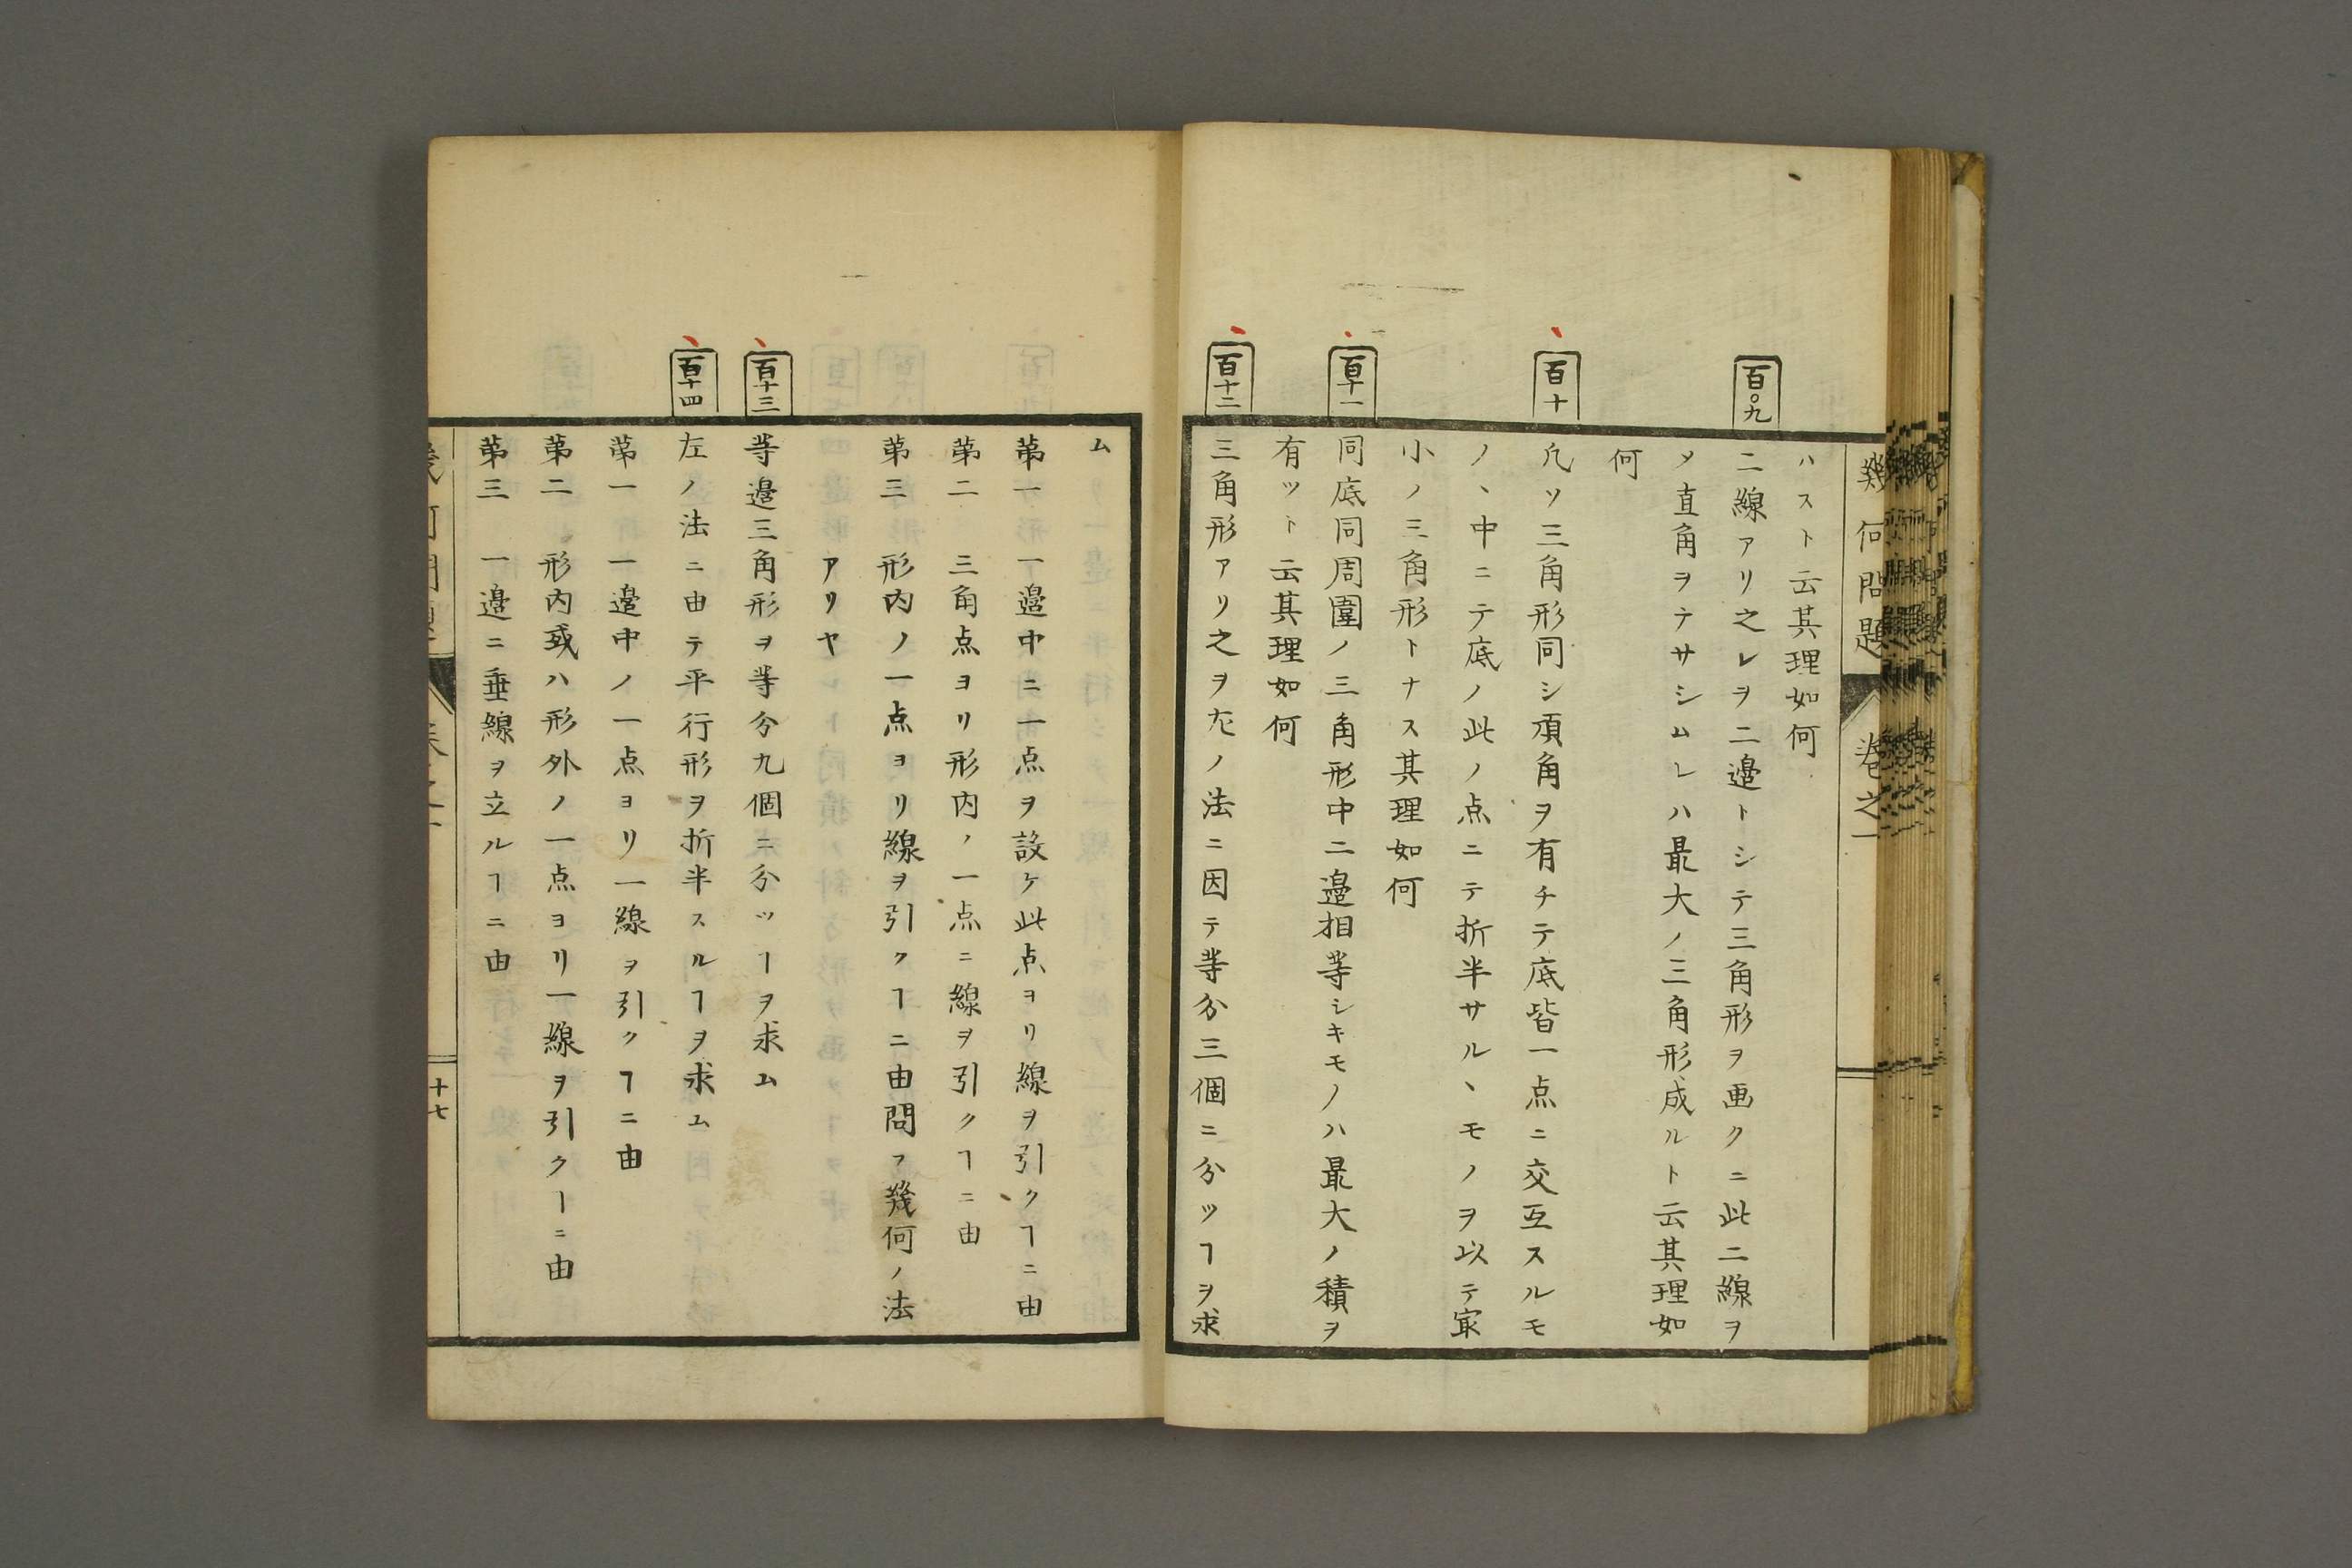 幾何問題
卷之一
ハスト云其理如何
百〇九
二線アリ之レヲ二邉トシテ三角形ヲ画クニ此二線ヲ
メ直角ヲナサシムレハ最大ノ三角形成ルト云其理如
何
百十
凡ソ三角形同シ頂角ヲ有チテ底皆一点ニ交互スルモ
ノヽ中ニテ底ノ此ノ点ニテ折半サルヽモノヲ以テ㝡
小ノ三角形トナス其理如何
百十一
同底同周圍ノ三角形中二邉相等シキモノハ最大ノ積ヲ
有ツト云其理如何
百十二
三角形アリ之ヲ左ノ法ニ因テ等分三個ニ分ツヿヲ求
ム
第一 一邉中ニ一点ヲ設ケ此点ヨリ線ヲ引クヿニ由
第二 三角点ヨリ形内ノ一点ニ線ヲ引クヿニ由
第三 形内ノ一点ヨリ線ヲ引クヿニ由問フ幾何ノ法
アリヤ
百十三
等邉三角形ヲ等分九個ニ分ツヿヲ求ム
百十四
左ノ法ニ由テ平行形ヲ折半スルヿヲ求ム
第一 一邉中ノ一点ヨリ一線ヲ引クヿニ由
第二 形内或ハ形外ノ一点ヨリ一線ヲ引クヿニ由
第三 一邉ニ垂線ヲ立ルヿニ由
十七